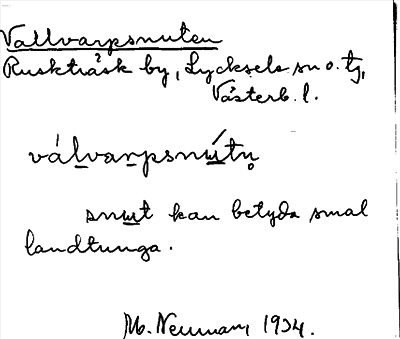 Vallvarpsnuten
Ruskträsk by, Lycksele sn o. tj,
Västerb. l.
válvarpsnútn̥
snut kan betyda smal
landtunga.
M. Neuman, 1934.